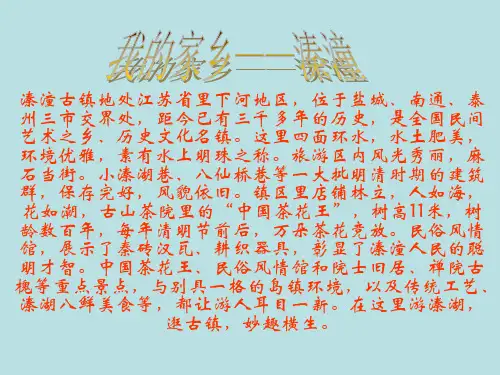 我的家乡——溱潼
溱潼古镇地处江苏省里下河地区，位于盐城、南通、泰
州三市交界处，距今已有三千多年的历史，是全国民间
艺术之乡、历史文化名镇。这里四面环水，水土肥美，
环境优雅，素有水上明珠之称。旅游区内风光秀丽，麻
石当街。小溱湖巷、八仙桥巷等一大批明清时期的建筑
群，保存完好，风貌依旧。镇区里店铺林立，人如海，
花如潮，古山茶院里的“中国茶花王”，树高11米，树
龄数百年，每年清明节前后，万朵茶花竞放。民俗风情
馆，展示了秦砖汉瓦、耕织器具，彰显了溱潼人民的聪
明才智。中国茶花王、民俗风情馆和院士旧居、禅院古
槐等重点景点，与别具一格的岛镇环境，以及传统工艺、
溱湖八鲜美食等，都让游人耳目一新。在这里游溱湖，
逛古镇，妙趣横生。